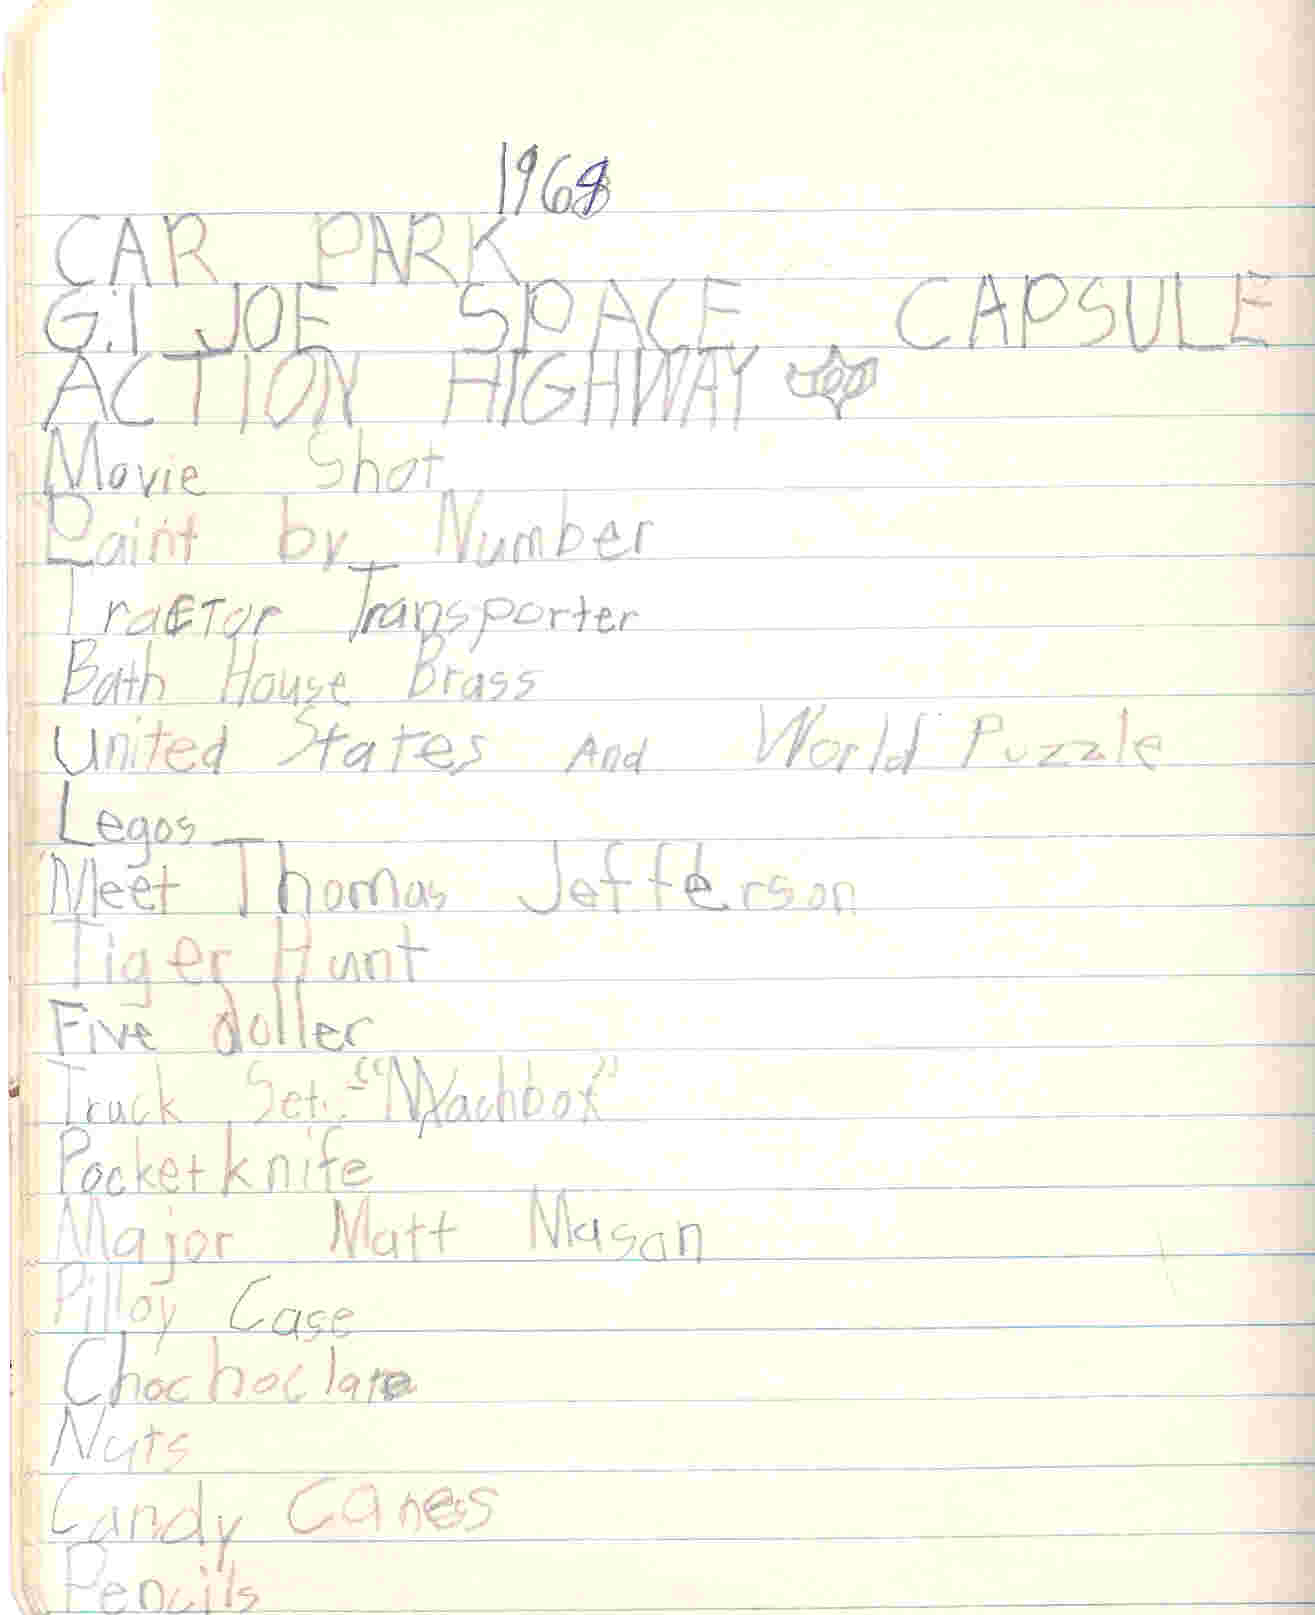 1968
CAR PARK
G.I JOE SPACE CAPSULE
ACTION HIGHWAY
Movie Shot
Paint by Number
Tractor Transporter
Bath House Brass
United States And World Puzzle
Legos
Meet Thomas Jefferson
Tiger Hunt
Five doller
Truck Set. "Machbox"
Pocketknife
Major Matt Mason
Pilloy Case
Chochoclate
Nuts
Candy Caness
Pencils